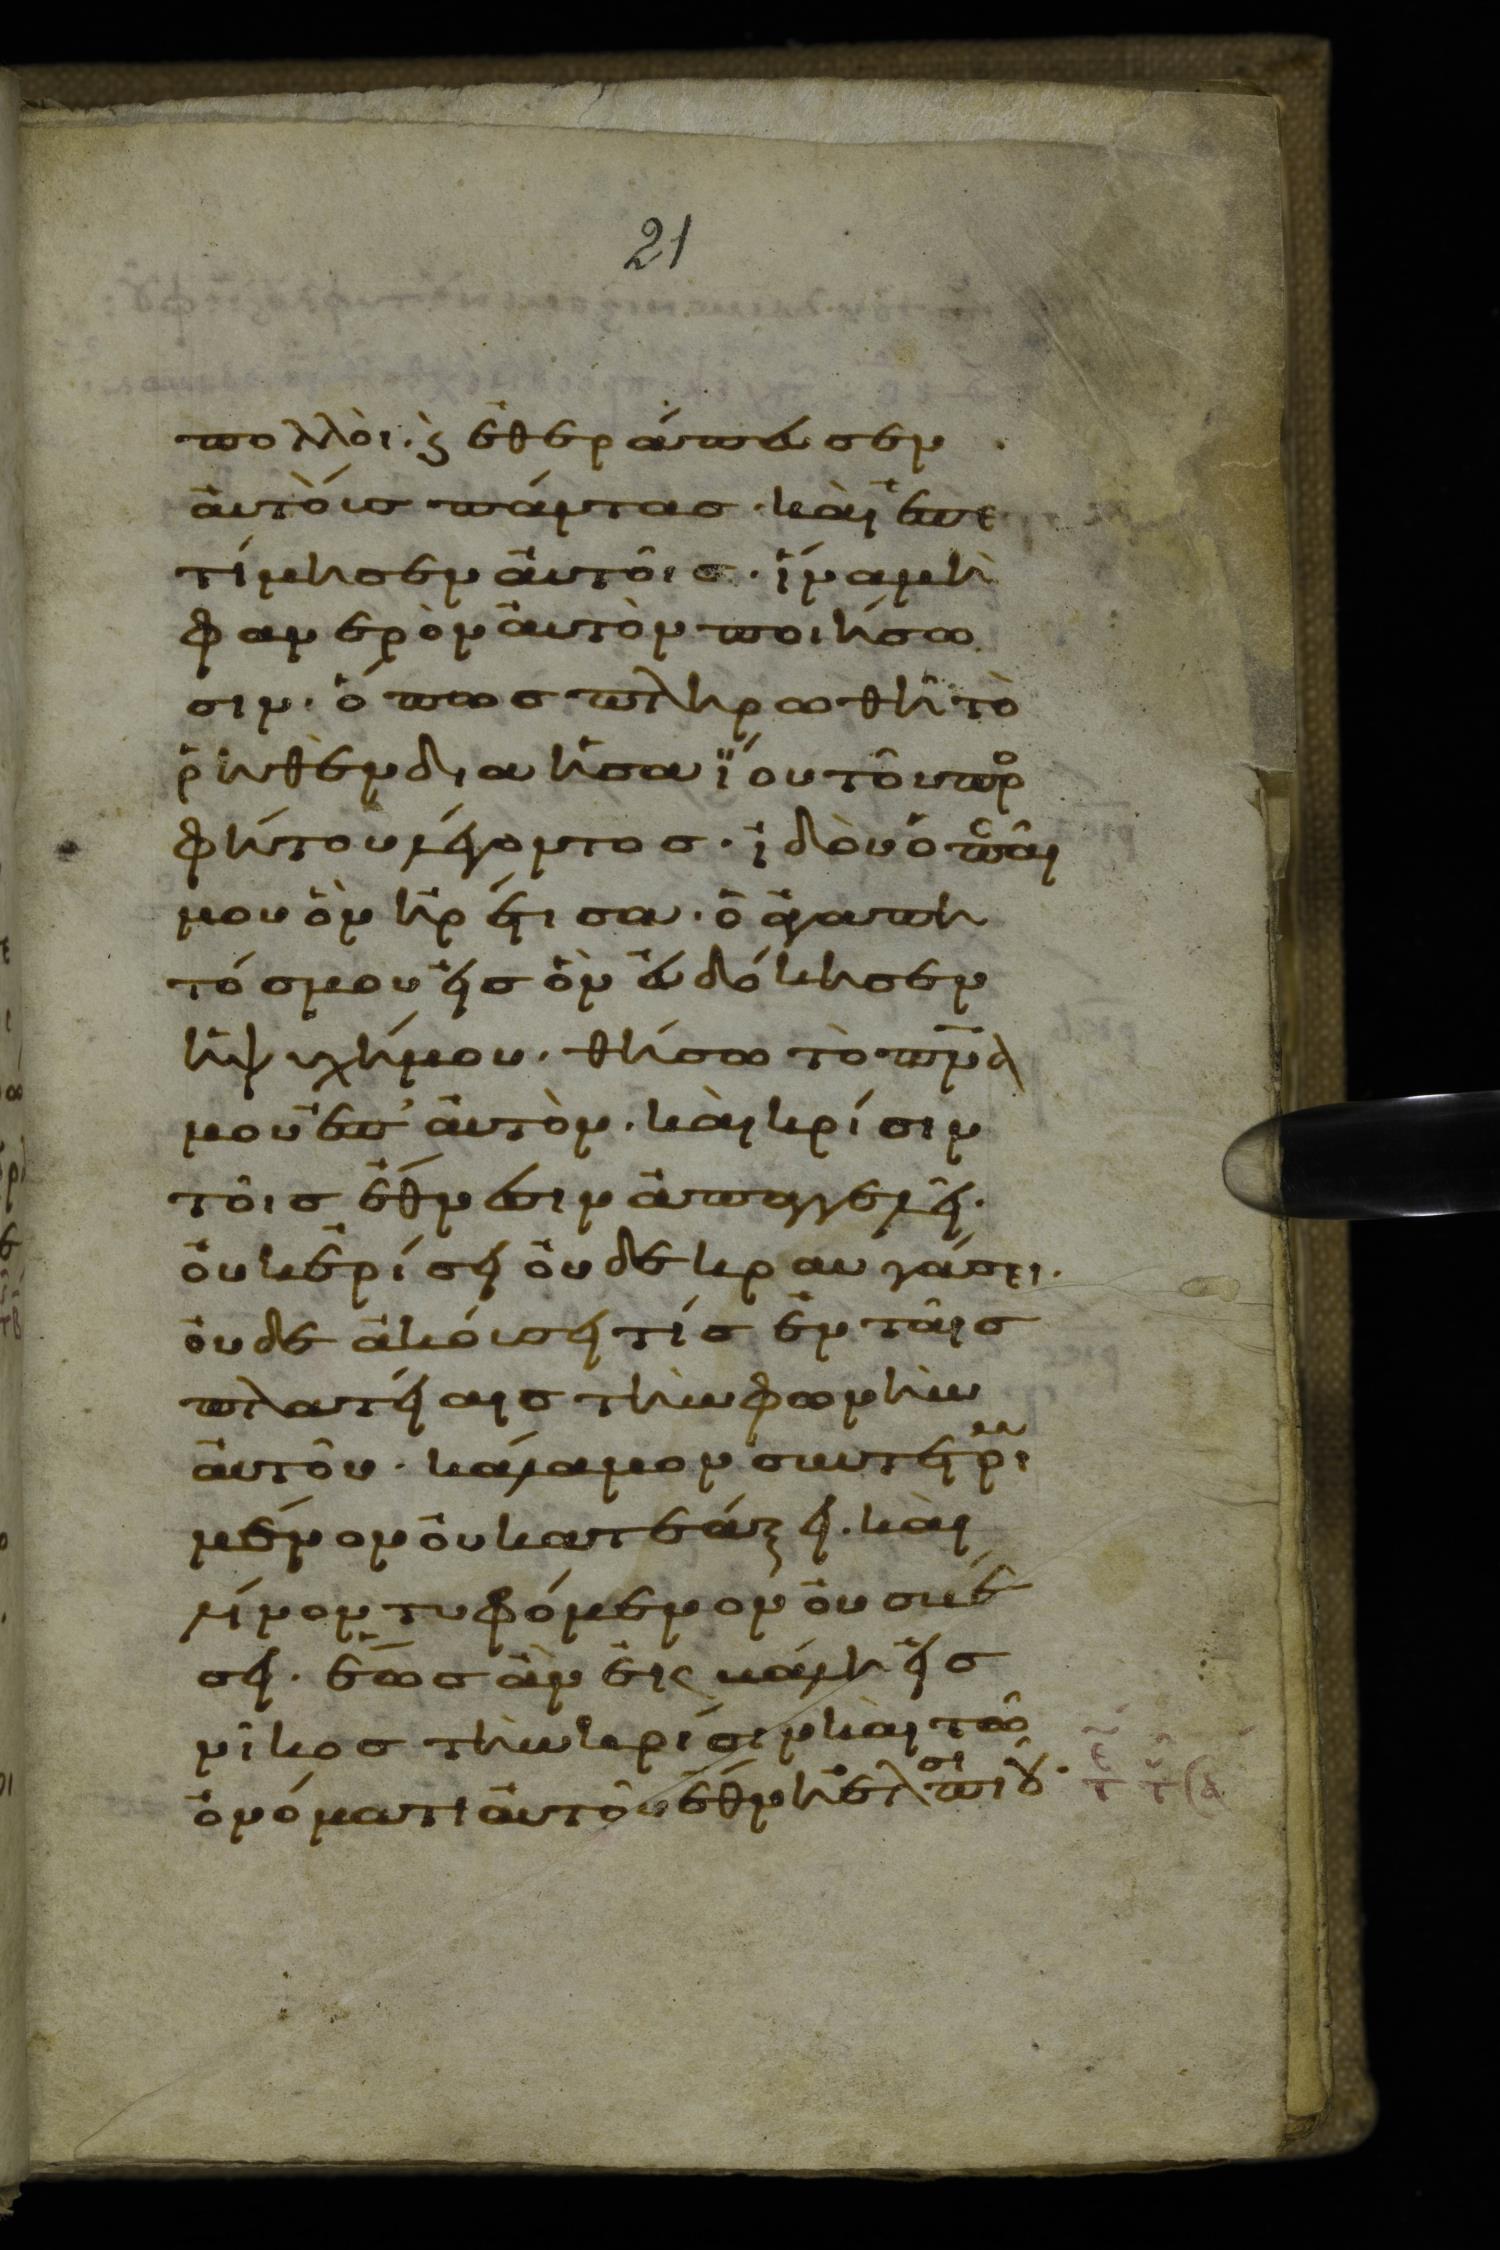 21
πολλοὶ. ϗ ἐθεράπευσεν
αὐτοὺς πάντας. καὶ ἐπε
τίμησεν αὐτοῖς. ἵνα μὴ
φανερὸν αὐτὸν ποιήσω
σιν. ὅπως πληρωθῆ τὸ
ῥηθὲν δια ἠσαΐου τοῦ προ
φήτου λέγοντος. ἰδοὺ ὁ παῖς
μου ὃν ἠρέτισα. ὁ ἀγαπη
τός μου εἰς ὃν εὐδόκησεν
ἡ ψυχή μου. θήσω τὸ πν̅α
μου ἐπ' αὐτὸν. καὶ κρίσιν
τοῖς ἔθνεσιν ἀπαγγελεῖ.
οὐκ ἐρίσει οὐδε κραυγάσει.
οὐδε ἀκούσει τίς ἐν ταῖς
πλατείαις τὴν φωνὴν
αὐτοῦ. κάλαμον συντετριμ
μένον οὐ κατεάξει. καὶ
λίνον τυφόμενον οὐ σβέ
σει. ἕως ἂν ἐκβάλη εἰς
νῖκος τὴν κρίσιν καὶ τῶ
ὀνόματι αὐτοῦ ἔθνη ἐλπιοῦσι.